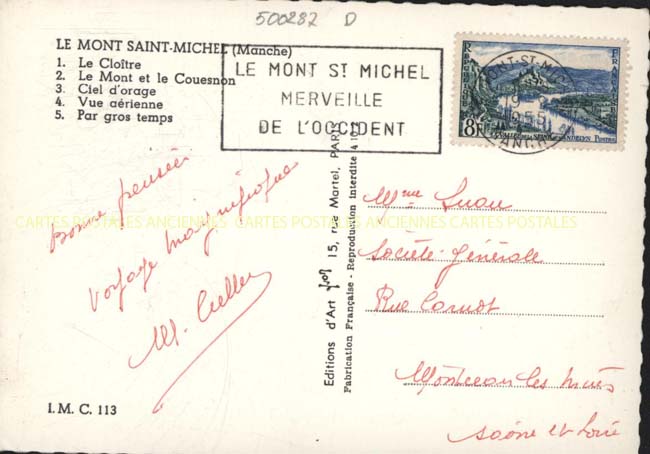 500287 D
LE MONT SAINT-MICHEL (Manche)
1. Le Cloître
2. Le Mont et le Couesnon
3. Ciel d'orage
4. Vue aérienne
5. Par gros temps
LE MONT ST MICHEL
MERVEILLE
DE L'OCCIDENT
REPUBLIQUE
FRANÇAISE
8F
Postes
MONT-ST-MICHEL
1955
MANCHE
CARTES POSTALES ANCIENNES CARTES POSTALES ANCIENNES CARTES POSTALES
Bonne pensée
Voyage magnifique
M.
I.M.C. 113
Editions d'Art 15, rue Martel, PARIS
Fabrication Française - Reproduction Interdite
Mme
Société Générale
Rue Carnot
Montceau les Mines
Saône et Loire